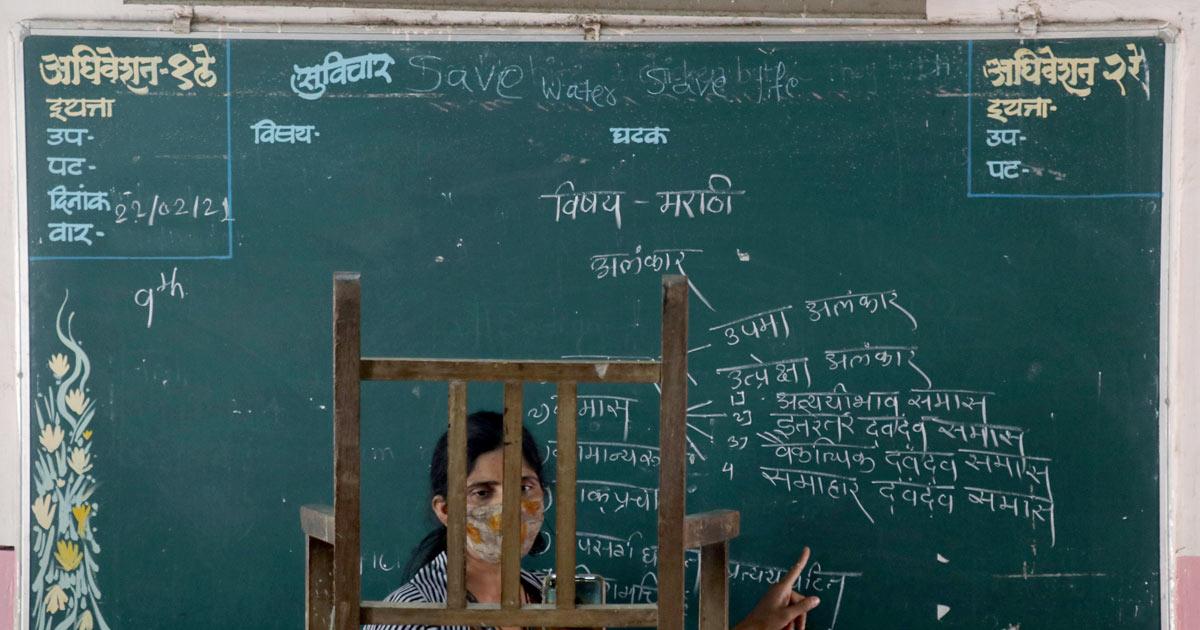 अधिवेशन-१ले
इयत्ता
उप-
पट-
दिनांक 22/02/21
वार-
9th
सुविचार Save Water Save life
विषय- घटक
अधिवेशन २रे
इयत्ता-
उप-
पट-
विषय - मराठी
अलंकार
उपमा अलंकार
उत्प्रेक्षा अलंकार
2) समास
1] अव्ययीभाव समास
2] इतरेतर दवंदव समास
3) वैकल्पिक दवंदव समास
4 समाहार दवंदव समास